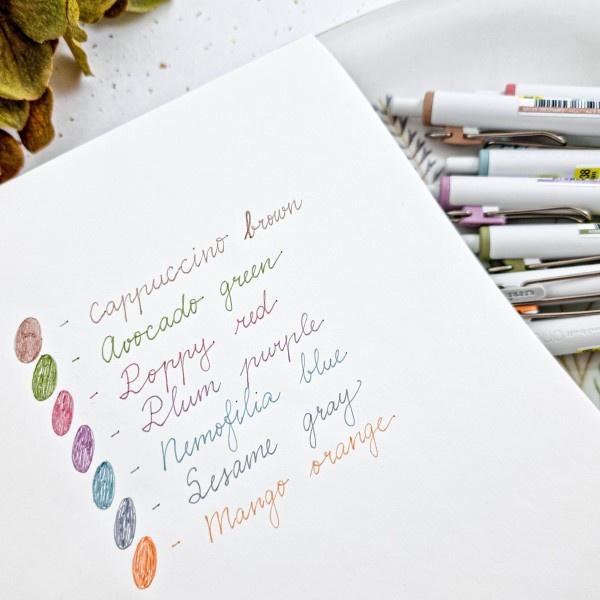 - Cappuccino brown
- Avocado green
- Poppy red
- Plum purple
- Nemofilia blue
- Sesame gray
- Mango orange